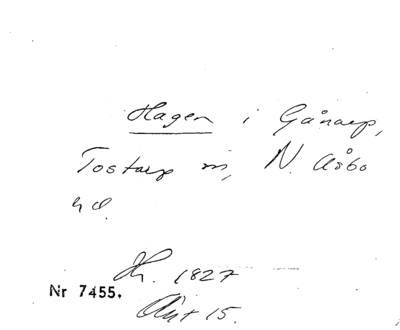 Hagen i Gånarp,
Tostarp sn, N. Åsbo
hd.
Hr. 1827
Nr 7455.
Akt 15.